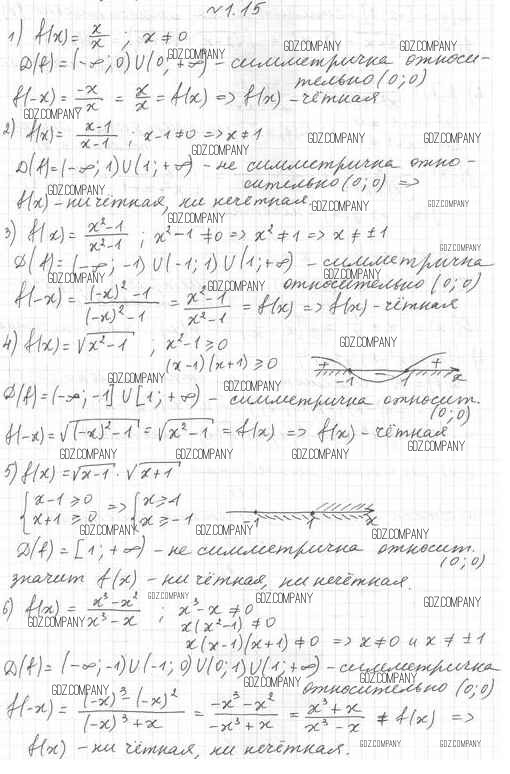 №1.15
1) f(x) = x/x ; x ≠ 0
D(f) = (-∞; 0) ∪ (0; +∞) - симметрична относи-
тельно (0; 0)
f(-x) = -x/-x = x/x = f(x) => f(x) - чётная
2) f(x) = x-1/x-1 ; x-1 ≠ 0 => x ≠ 1
D(f) = (-∞; 1) ∪ (1; +∞) - не симметрична отно-
сительно (0; 0) =>
f(x) - ни чётная, ни нечётная.
3) f(x) = x²-1/x²-1 ; x²-1 ≠ 0 => x² ≠ 1 => x ≠ ±1
D(f) = (-∞; -1) ∪ (-1; 1) ∪ (1; +∞) - симметрична
относительно (0; 0)
f(-x) = (-x)²-1/(-x)²-1 = x²-1/x²-1 = f(x) => f(x) - чётная
4) f(x) = √(x²-1) ; x²-1 ≥ 0
(x-1)(x+1) ≥ 0
+ - + -1 1 x
D(f) = (-∞; -1] ∪ [1; +∞) - симметрична относит.
(0; 0)
f(-x) = √((-x)²-1) = √(x²-1) = f(x) => f(x) - чётная
5) f(x) = √(x-1) · √(x+1)
{x-1 ≥ 0 => {x ≥ 1
{x+1 ≥ 0 {x ≥ -1
-1 1 x
D(f) = [1; +∞) - не симметрична относит.
(0; 0)
значит f(x) - ни чётная, ни нечётная.
6) f(x) = x³-x²/x³-x ; x³-x ≠ 0
x(x²-1) ≠ 0
x(x-1)(x+1) ≠ 0 => x ≠ 0 и x ≠ ±1
D(f) = (-∞; -1) ∪ (-1; 0) ∪ (0; 1) ∪ (1; +∞) - симметрична
относительно (0; 0)
f(-x) = (-x)³-(-x)²/(-x)³+x = -x³-x²/-x³+x = x³+x/x³-x ≠ f(x) =>
f(x) - ни чётная, ни нечётная.
GDZ.COMPANY